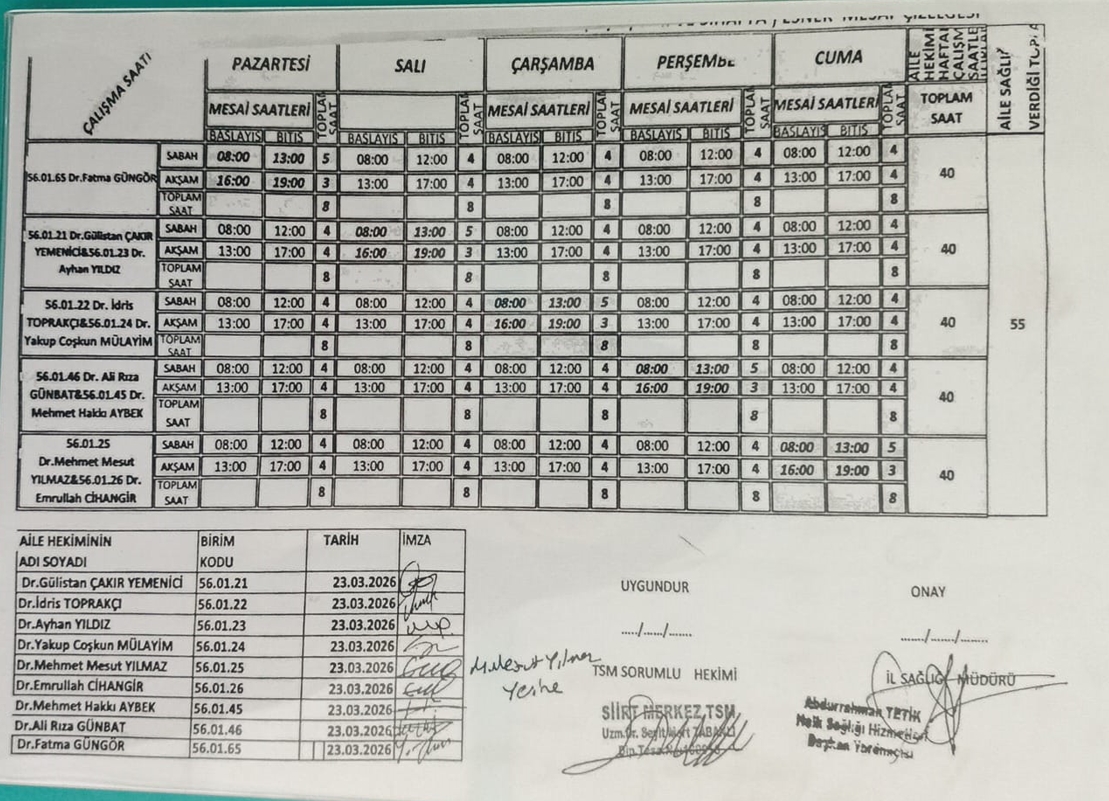 ESNEK MESAİ ÇİZELGESİ
ÇALIŞMA SAATİ
PAZARTESİ SALI ÇARŞAMBA PERŞEMBE CUMA
AİLE HEKİMİ HAFTA ÇALIŞM SAATLE
MESAİ SAATLERİ TOPLAM SAAT TOPLAM SAAT MESAİ SAATLERİ TOPLAM SAAT MESAİ SAATLERİ TOPLAM SAAT MESAİ SAATLERİ TOPLAM SAAT TOPLAM SAAT
AİLE SAĞLIĞ VERDİĞİ TOPLA
BAŞLAYIŞ BİTİŞ BAŞLAYIŞ BİTİŞ BAŞLAYIŞ BİTİŞ BAŞLAYIŞ BİTİŞ BAŞLAYIŞ BİTİŞ
56.01.65 Dr.Fatma GÜNGÖR
SABAH 08:00 13:00 5 08:00 12:00 4 08:00 12:00 4 08:00 12:00 4 08:00 12:00 4
AKŞAM 16:00 19:00 3 13:00 17:00 4 13:00 17:00 4 13:00 17:00 4 13:00 17:00 4 40
TOPLAM SAAT 8 8 8 8 8
56.01.21 Dr.Gülistan ÇAKIR
YEMENİCİ&56.01.23 Dr.
Ayhan YILDIZ
SABAH 08:00 12:00 4 08:00 13:00 5 08:00 12:00 4 08:00 12:00 4 08:00 12:00 4
AKŞAM 13:00 17:00 4 16:00 19:00 3 13:00 17:00 4 13:00 17:00 4 13:00 17:00 4 40
TOPLAM SAAT 8 8 8 8 8
56.01.22 Dr. İdris
TOPRAKÇI&56.01.24 Dr.
Yakup Coşkun MÜLAYİM
SABAH 08:00 12:00 4 08:00 12:00 4 08:00 13:00 5 08:00 12:00 4 08:00 12:00 4
AKŞAM 13:00 17:00 4 13:00 17:00 4 16:00 19:00 3 13:00 17:00 4 13:00 17:00 4 40 55
TOPLAM SAAT 8 8 8 8 8
56.01.46 Dr. Ali Rıza
GÜNBAT&56.01.45 Dr.
Mehmet Hakkı AYBEK
SABAH 08:00 12:00 4 08:00 12:00 4 08:00 12:00 4 08:00 13:00 5 08:00 12:00 4
AKŞAM 13:00 17:00 4 13:00 17:00 4 13:00 17:00 4 16:00 19:00 3 13:00 17:00 4 40
TOPLAM SAAT 8 8 8 8 8
56.01.25
Dr.Mehmet Mesut
YILMAZ&56.01.26 Dr.
Emrullah CİHANGİR
SABAH 08:00 12:00 4 08:00 12:00 4 08:00 12:00 4 08:00 12:00 4 08:00 13:00 5
AKŞAM 13:00 17:00 4 13:00 17:00 4 13:00 17:00 4 13:00 17:00 4 16:00 19:00 3 40
TOPLAM SAAT 8 8 8 8 8
AİLE HEKİMİNİN BİRİM TARİH İMZA
ADI SOYADI KODU
Dr.Gülistan ÇAKIR YEMENİCİ 56.01.21 23.03.2026
Dr.İdris TOPRAKÇI 56.01.22 23.03.2026
Dr.Ayhan YILDIZ 56.01.23 23.03.2026
Dr.Yakup Coşkun MÜLAYİM 56.01.24 23.03.2026
Dr.Mehmet Mesut YILMAZ 56.01.25 23.03.2026
Dr.Emrullah CİHANGİR 56.01.26 23.03.2026
Dr.Mehmet Hakkı AYBEK 56.01.45 23.03.2026
Dr.Ali Rıza GÜNBAT 56.01.46 23.03.2026
Dr.Fatma GÜNGÖR 56.01.65 23.03.2026
Mesut Yılmaz
Yerine
UYGUNDUR
...../...../.......
TSM SORUMLU HEKİMİ
SİİRT MERKEZ TSM
Uzm.Dr.
ONAY
....../....../.......
İL SAĞLIĞI MÜDÜRÜ
Abdurrahman TETİK
Halk Sağlığı Hizmetleri
Başkan Yardımcısı